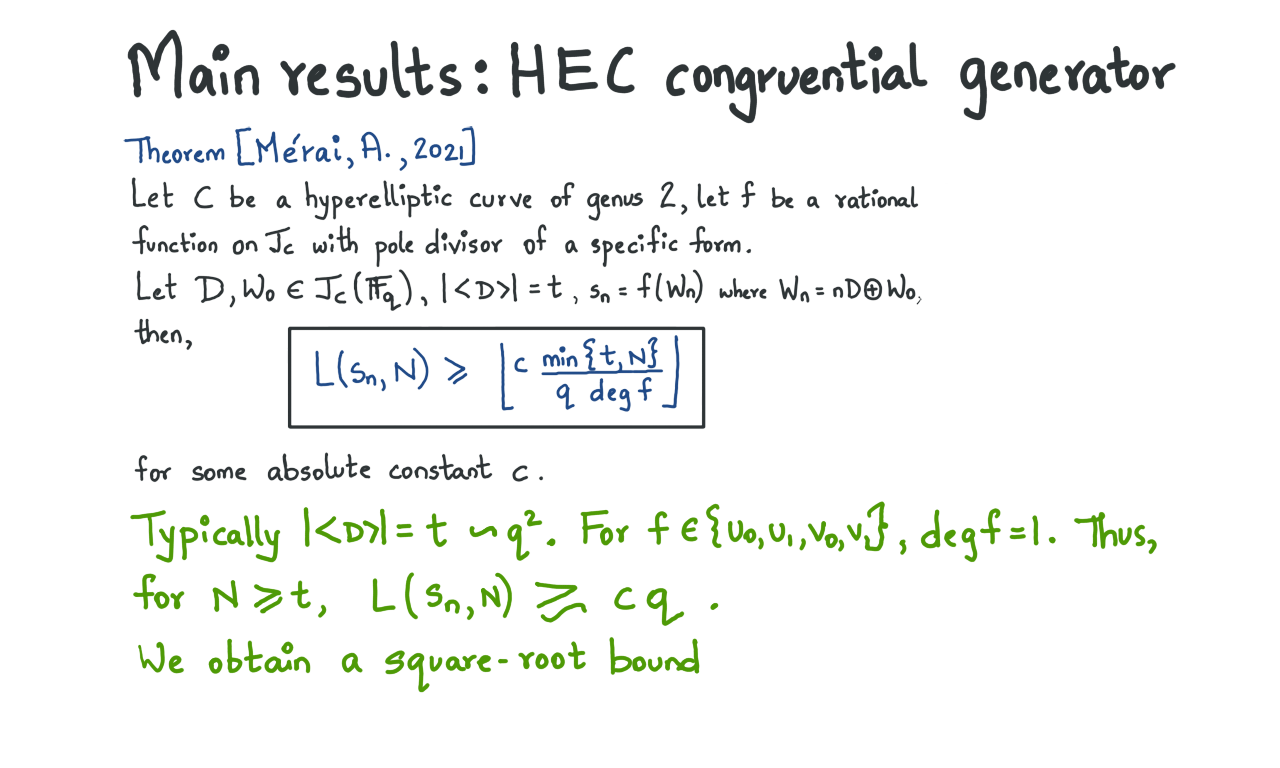 Main results: HEC congruential generator
Theorem [Mérai, A., 2021]
Let C be a hyperelliptic curve of genus 2, let f be a rational
function on J_C with pole divisor of a specific form.
Let D, W₀ ∈ J_C(𝔽_q), |<D>| = t, s_n = f(W_n) where W_n = nD⊕W₀,
then,
L(s_n, N) ≥ ⌊c min{t, N} / q deg f⌋
for some absolute constant c.
Typically |<D>| = t ~ q². For f ∈ {u₀, u₁, v₀, v₁}, deg f = 1. Thus,
for N ≥ t, L(s_n, N) ≳ c q .
We obtain a square-root bound